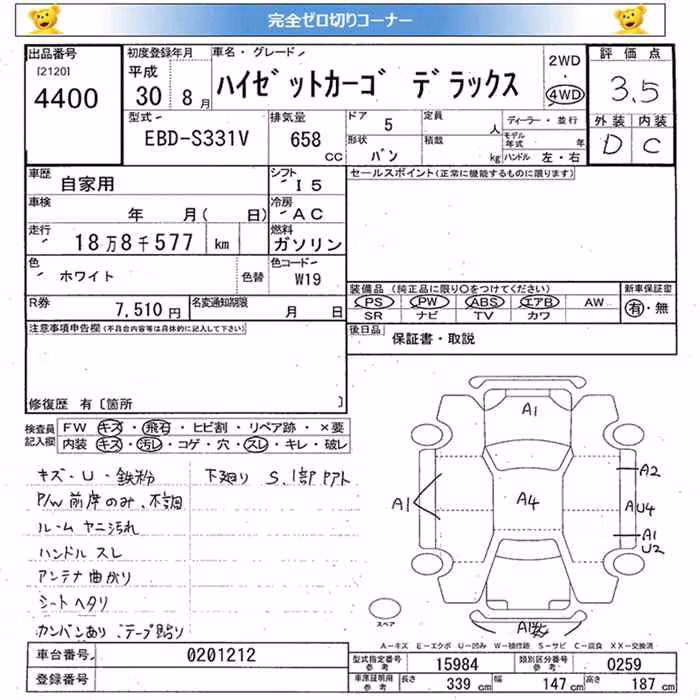 完全ゼロ切りコーナー
出品番号 [2120] 4400
初度登録年月 平成 30 8月
車名・グレード ハイゼットカーゴ デラックス
2WD・4WD
評価点 3.5
外装 内装
D C
型式 EBD-S331V
排気量 658 CC
ドア 5
定員 人
ディーラー・並行
モデル年式 年
形状 バン
積載 kg
ハンドル 左・右
車歴 自家用
シフト I5
セールスポイント(正常に機能するものに限ります)
車検 年 月( 日)
冷房 AC
走行 18万8千577 km
燃料 ガソリン
色 ホワイト 色替
色コード W19
装備品 (純正品に限り○をつけてください)
新車保証書
PS PW ABS エアB AW 有・無
SR ナビ TV カワ
R券 7,510円
名変通知期限 月 日
後日品 保証書・取説
注意事項申告欄(不具合内容等は具体的に記入して下さい)
修復歴 有〔箇所 〕
検査員記入欄
FW キズ・飛石・ヒビ割・リペア跡・×要
内装 キズ・汚レ・コゲ・穴・スレ・キレ・破レ
キズ・U・鉄粉 下廻り S、1部
P/W 前席のみ、不調
ルーム ヤニ汚れ
ハンドル スレ
アンテナ曲がり
シートヘタリ
カンバンあり テープ貼り
A1
A2
A1
A4
AU4
A1
U2
A1
スペア
A-キズ E-エクボ U-凹み W-補修跡 S-サビ C-腐食 XX-交換済
車台番号 0201212
型式指定番号 参考 15984
類別区分番号 参考 0259
登録番号
車庫証明用 参考 長さ 339 cm 幅 147 cm 高さ 187 cm